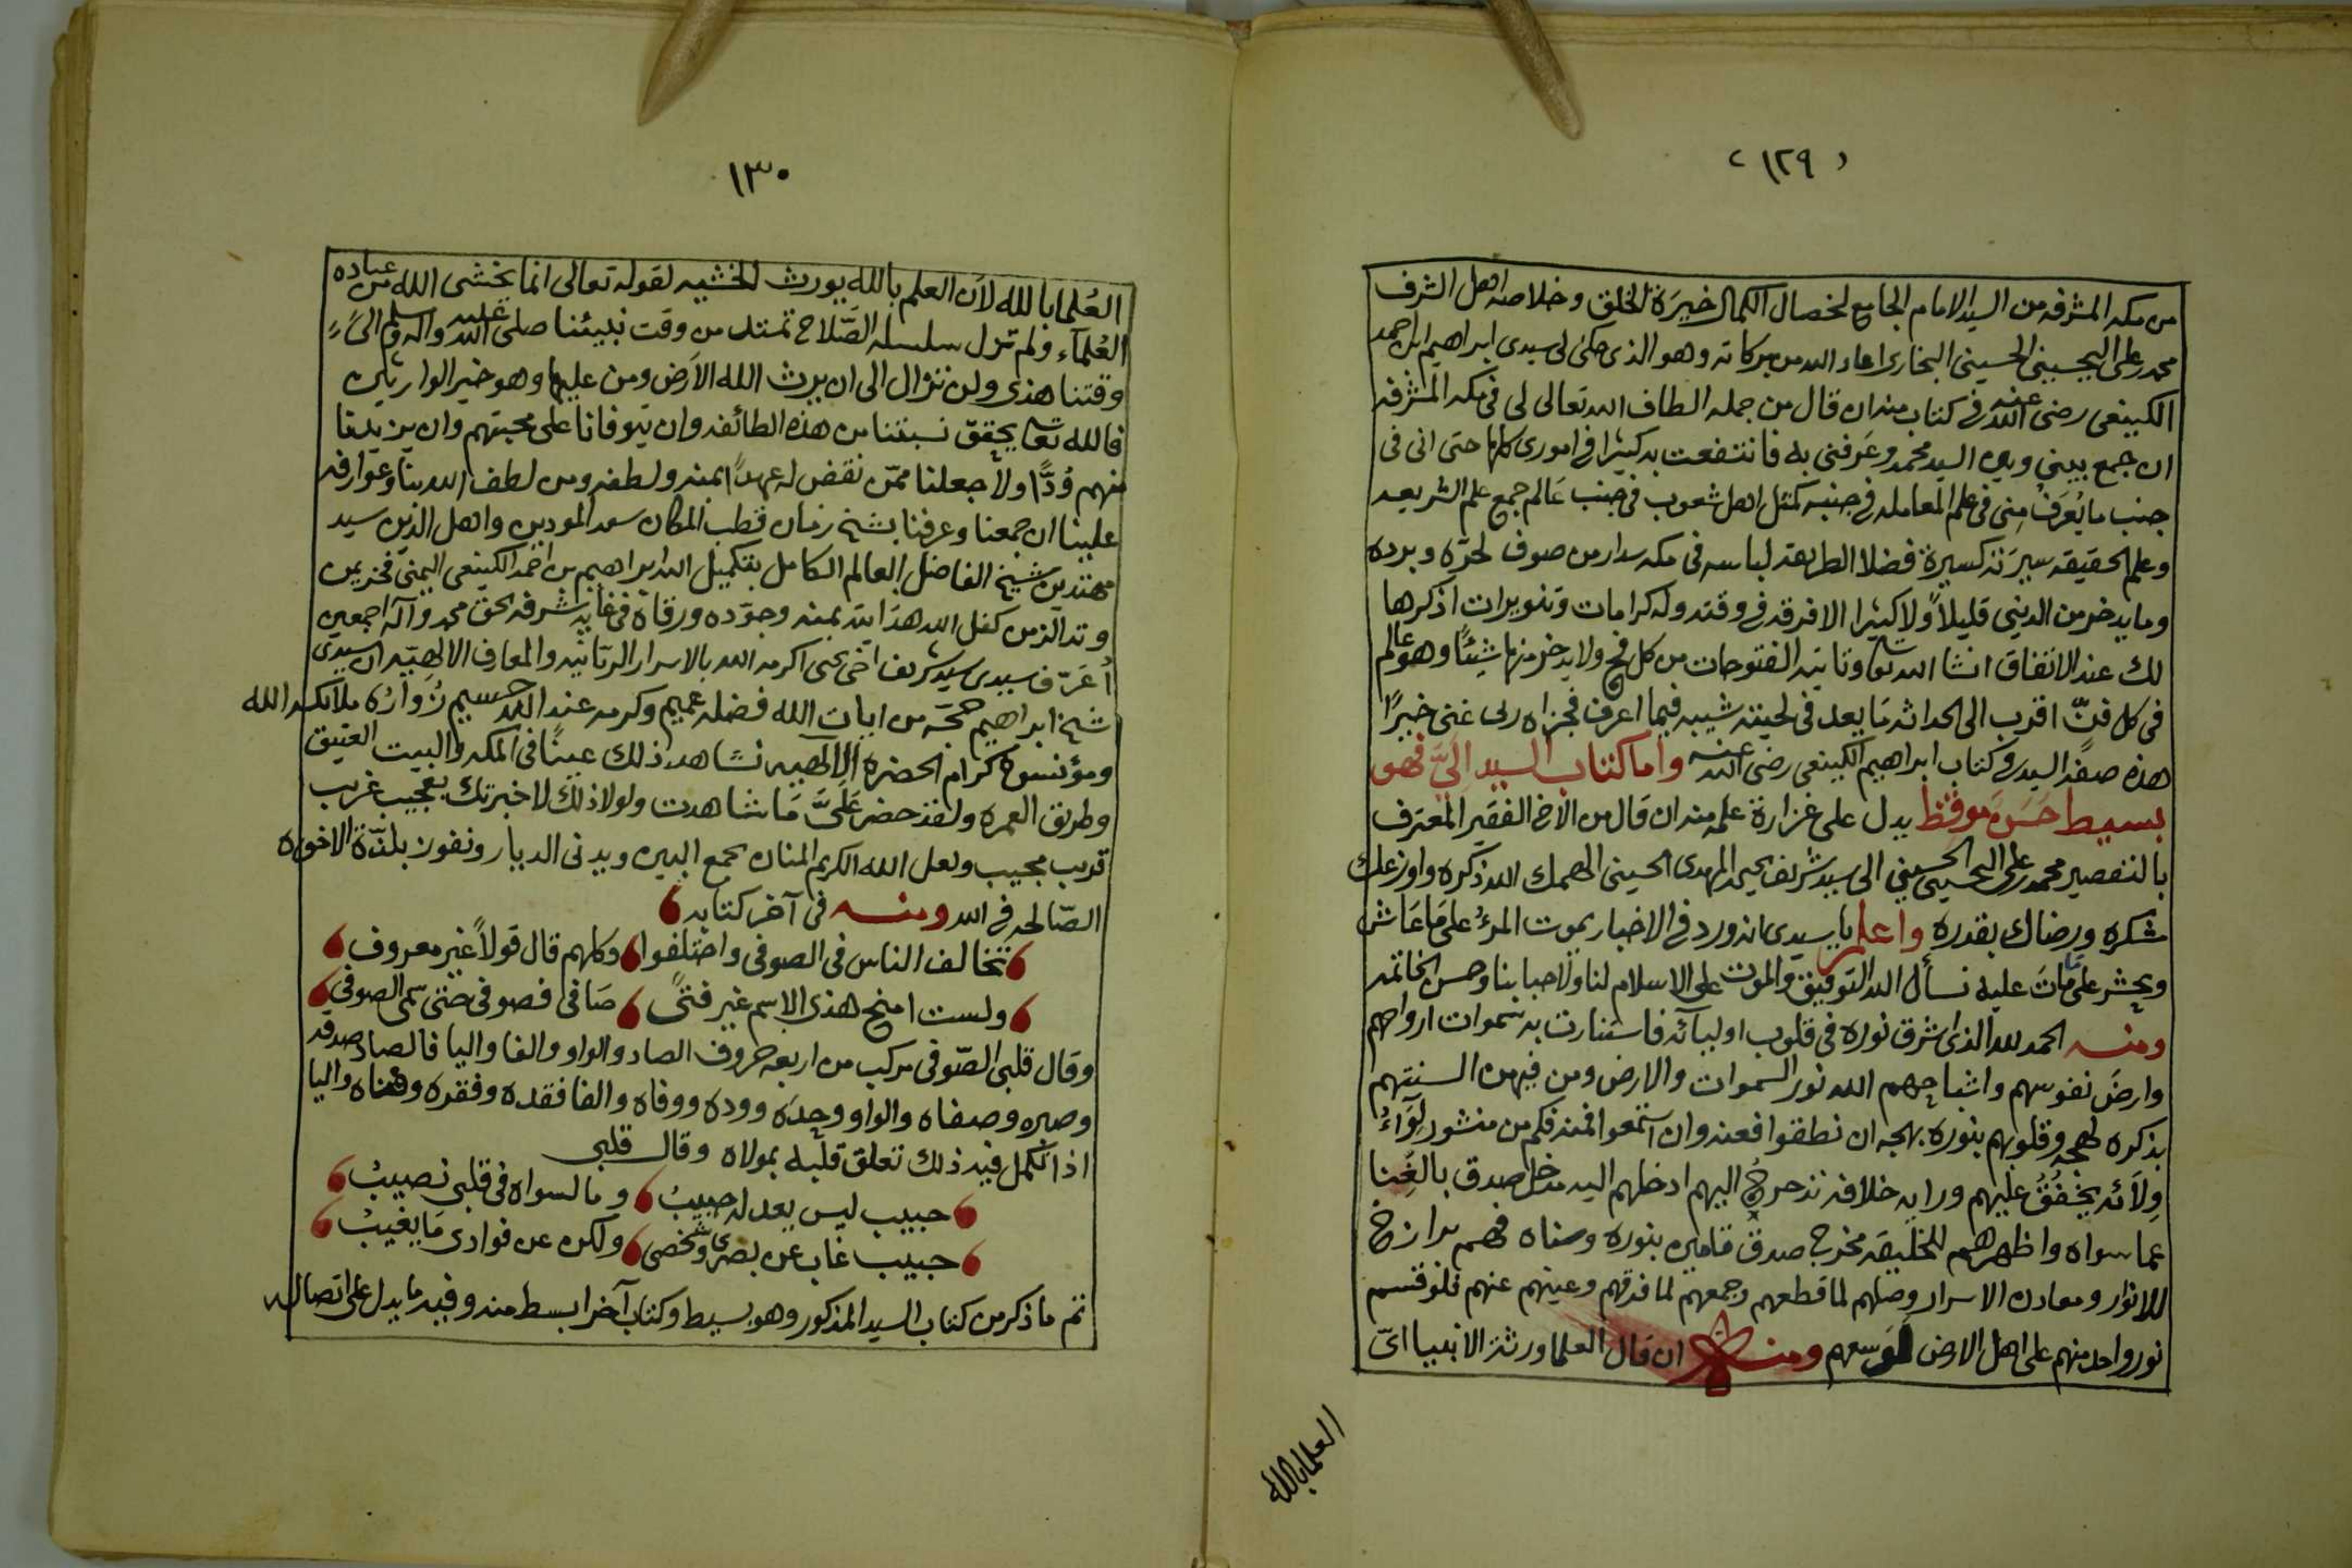 (١٢٩)
من مكه المشرفه من السيد الامام الجامع لخصال الكمال خيرة الخلق وخلاصه اهل الشرف
محمد على الحسينى البخارى اعاد الله من بركاته وهو الذى حكى لى سيدى ابراهيم ابن احمد
الكينعى رضى الله عنه فى كتاب منه ان قال من جمله الطاف الله تعالى لى فى مكه المشرفه
ان جمع بينى وبين السيد محمد وعرفنى به فانتفعت به كثيرا فى امورى كلها حتى انى فى
جنب ما يُعَرَفُ مِنى فى علم المعامله فى جنبه كمثل اهل شعوب فى جنب عَالم جمع علم الشريعه
وعلم الحقيقه سيرَته كسيرة فضلا الطريقه لباسه فى مكه سدار من صوف لحرّه وبرده
وما يدخر من الدنيى قليلاً ولا كثيرا الا فرقه فى وقته وله كرامات وتنويرات اذكرها
لك عند الاتفاق انشا الله تعالى وتاتيه الفتوحات من كل فج ولا يدخر منها شيئًا وهو عالم
فى كل فنّ اقرب الى الحداثه مَا يعد فى لحيته شيبه فيما اعرف فجزاه ربى عنى خيرًا
هذه صفة السيد فى كتاب ابراهيم الكينعى رضى الله عنه واما كتاب السيد اِلَيَّ فهو
بسيط حَسَن موقظ يدل على غزارة علمه منه ان قال من الاخ الفقير المعترف
بالتقصير محمد على الحسينى الى سيد شريف يحيى المهدى الحسينى الهمك الله ذكره واوزعك
شكره ورضاك بقدره واعلم يا سيدى انه ورد فى الاخبار يموت المرءُ على مَا عَاش
ويحشر على ما مات عليه نسأل الله التوفيق والموت على الاسلام لنا ولاحبابنا وحسن الخاتمه
ومنه الحمد لله الذى اشرق نوره فى قلوب اوليآئه فاستنارت به سموات ارواحهم
وارضَ نفوسهم واشباحهم الله نور السموات والارض ومن فيهن السنتهم
بذكره لهجه وقلوبهم بنوره بهجه ان نطقوا فعنه وان استمعوا فمنه فكم من منشور لِوَآءُ
وِلآئه يخفُقُ عليهم وراية خلافته اليهم ادخلهم اليه مدخل صدق بالغِنا
عما سواه واظهرهم للخليقه مخرج صدق قامين بنوره وسناه فهم برازخ
للانوار ومعادن الاسرار وصلهم لما قطعهم وجمعهم لما فرقهم وغيبهم عنهم فلو قسم
نور واحد منهم على اهل الارض لوَسعهم ومنه ان قال العلما ورثة الانبيا اىّ
العلما بالله
١٣٠
العُلما بالله لاَن العلم بالله يورث الخشيه لقوله تعالى انما يخشى الله من عباده
العُلمآء ولم تزل سلسله الصَّلاح تمتد من وقت نبيئنا صلى الله عليه واله وسلم الىَ
وقتنا هذى ولن تزال الى ان يرث الله الاَرض ومن عليها وهو خير الوارثين
فالله تعالى يحقق نسبتنا من هذه الطائفه وان يتوفانا على محبتهم وان يزيدنا
منهم وُدًّا ولا جعلنا ممّن نقض له عهدًا بمنه ولطفه ومن لطف الله بنا وعوارفه
علينا ان جمعنا وعرفنا بشيخ زمان قطب المكان سعد المودين واهل الدين سيد
مهتدين شيخ الفاضل العالم الكامل بتكميل الله ابراهيم بن احمد الكينعى اليمنى فخر يمن
وتد الزمن كفل الله هدَايته بمنه وجوّده ورقاه فى غاية شرفه بحق محمد وآله اجمعين
اُعَرّف سيدى سيد شريف اخى يحيى اكرمه الله بالاسرار الربّانيه والمعارف الالهيّه ان سيدى
شيخ ابراهيم حجّه من ايات الله فضله عميم وكرمه عند الله جسيم زُوارُه ملائكه الله
ومؤنسوه كرام الحضره الالهيه نشاهد ذلك عينًا فى المكه والبيت العتيق
وطريق العمره ولقد حضر عَلَيَّ مَا شاهدت ولولا ذلك لاخبرتك بعجيب غريب
قريب مجيب ولعل الله الكريم المنان يجمع البين ويدنى الديار ونفوز بلذة الاخوه
الصّالحه فى الله ومنه فى آخر كتابه
تخالف الناس فى الصوفى واختلفوا وكلهم قال قولاً غير معروف
ولست امنح هذى الاسم غير فتىً صَافى فصوفى حتى سمى الصوفى
وقال قلبى الصّوفى مركب من اربعه حروف الصاد والواو والفا واليا فالصاد صدقه
وصبره وصفاه والواو ووجدَه ووده ووفاه والفا فقده وفقره وفناه واليا
اذا تكمل فيه ذلك تعلق قلبه بمولاه وقال قلبى
حبيب ليس يعدله حبيبُ وما لسواه فى قلبى نصيبُ
حبيب غاب عن بصرى وشخصى ولكن عن فوادى مَا يغيبُ
تم ما ذكر من كتاب السيد المذكور وهو بسيط وكتاب آخر ابسط منه وفيه ما يدل على اتصاله